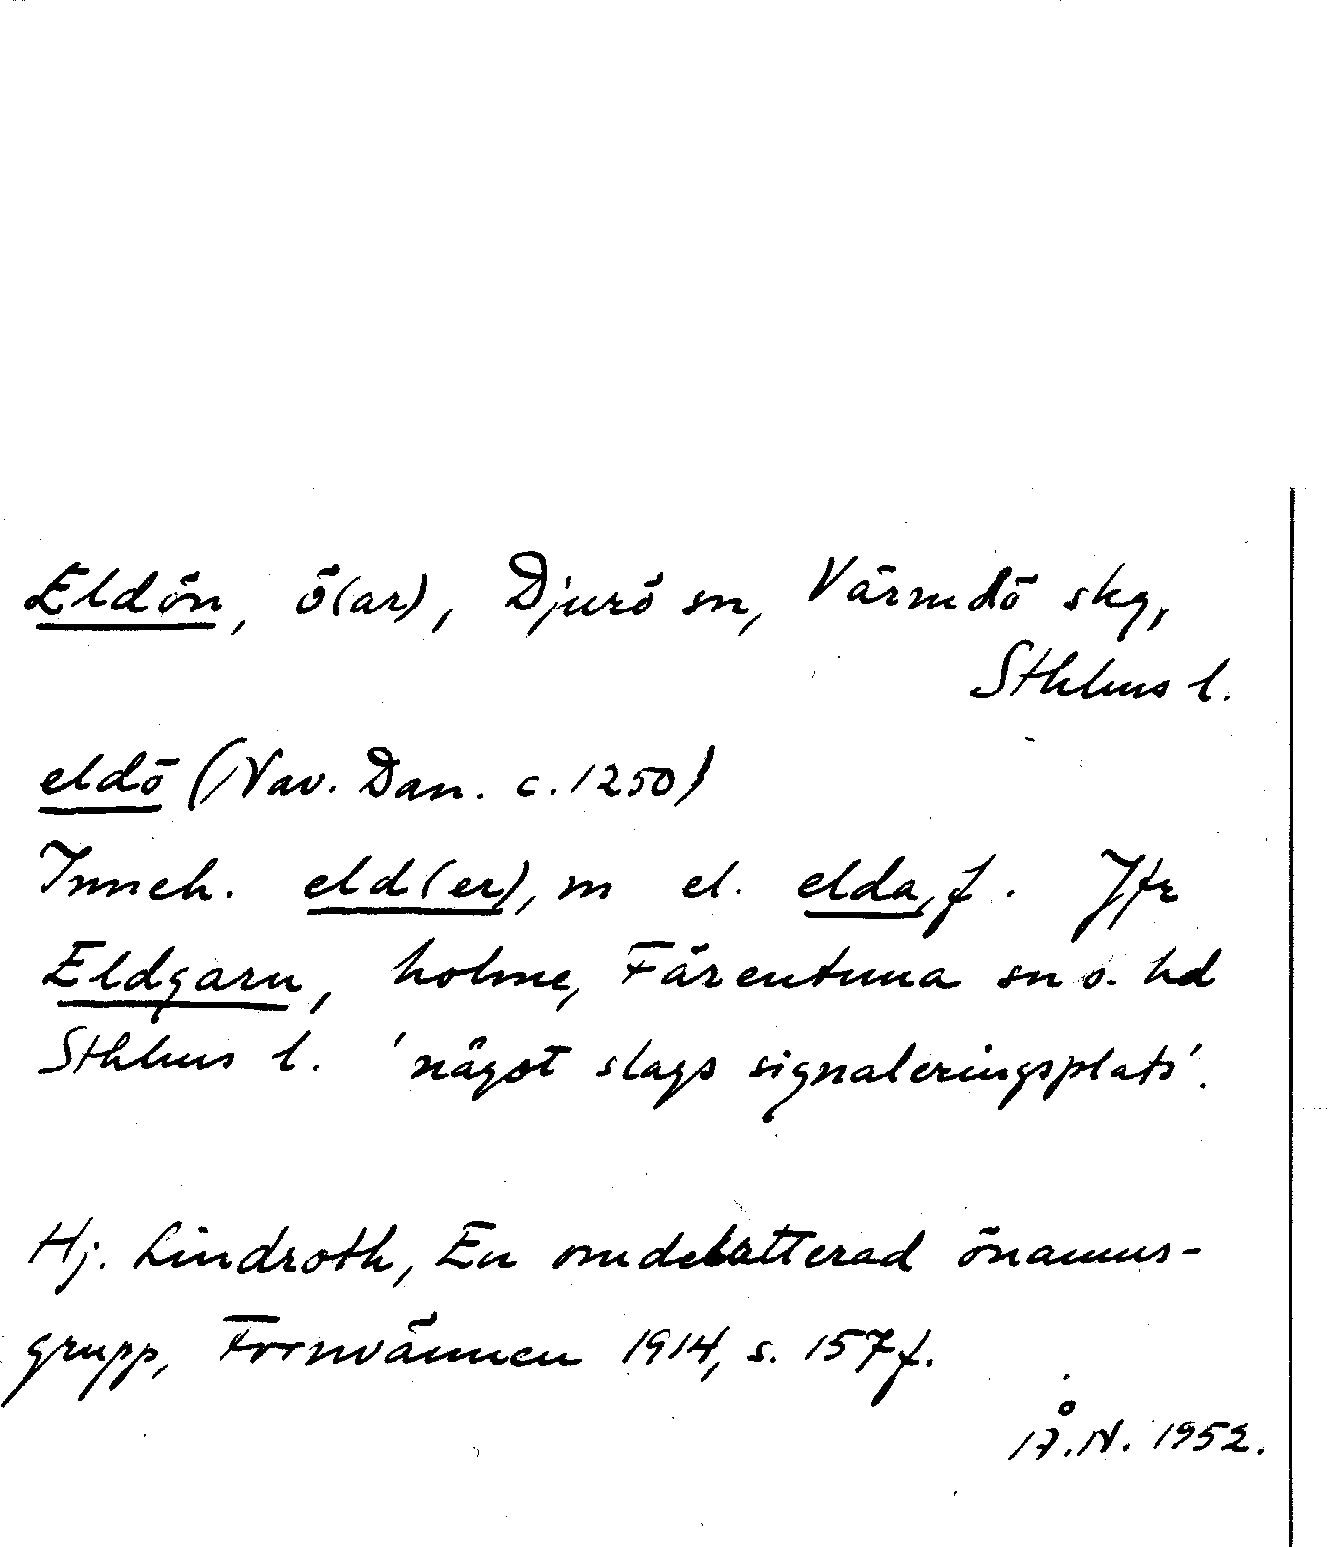 Eldön, ö(ar), Djurö sn, Värmdö skg,
Sthlms l.
eldö (Nav. Dan. c. 1250)
Inneh. eld(er), m el. elda, f. Jfr
Eldgarn, holme, Färentuna sn o. hd
Sthlms l. 'något slags signaleringsplats'.
Hj. Lindroth, En omdebatterad önamns-
grupp, Fornvännen 1914, s. 157 f.
Å.N. 1952.